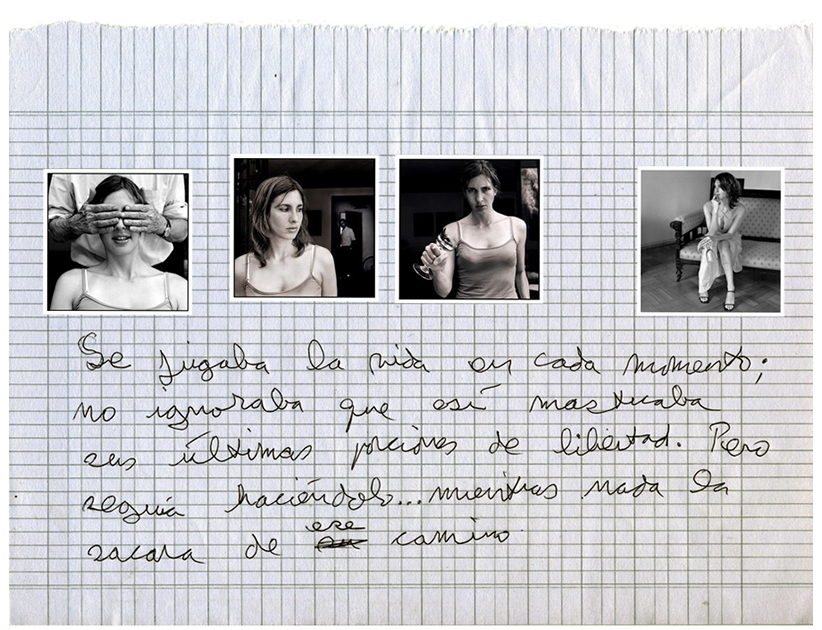 Se jugaba la vida en cada momento;
no ignoraba que así masticaba
sus últimas porciones de libertad. Pero
seguía haciéndolo... mientras nada la
sacara de ese camino.